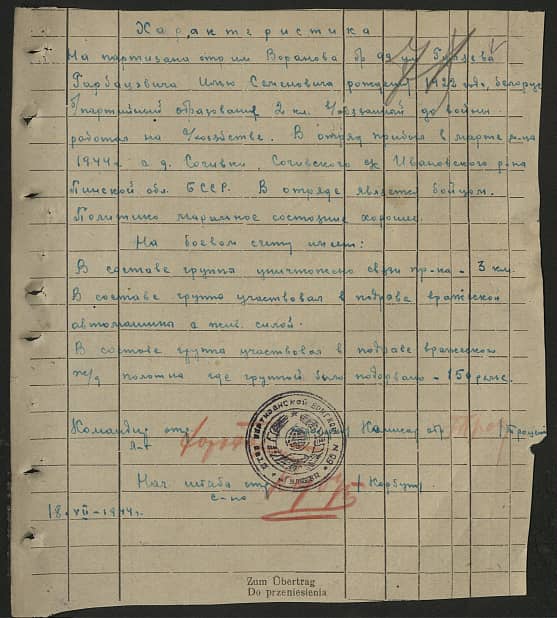 Характеристика
На партизана отр им Воранова бр 99 им Гуляева
Гарбацевича Илью Семеновича рождения 1922 года, белорус
б/партийный образование 2 кл. до войны
работал на с/хозяйстве. В отряд прибыл в марте м-ца
1944 г. а д. Сочивки Сочивского с/с Ивановского р-на
Пинской обл. БССР. В отряде является бойцом.
Политико маральное состояние хорошее.
На боевом счету имеет:
В составе группы уничтожено связи пр-ка - 3 км.
В составе группы участвовал в подраве вражеской
автомашины с жив. силой.
В составе группы участвовал в подраве вражеского
ж/д полотна где группой было подорвано - 150 рельс.
Командир отр Комисар отр
л-т
Нач штаба отр / Корбут /
с-на
18. XII - 1944 г.
Zum Übertrag
Do przeniesienia